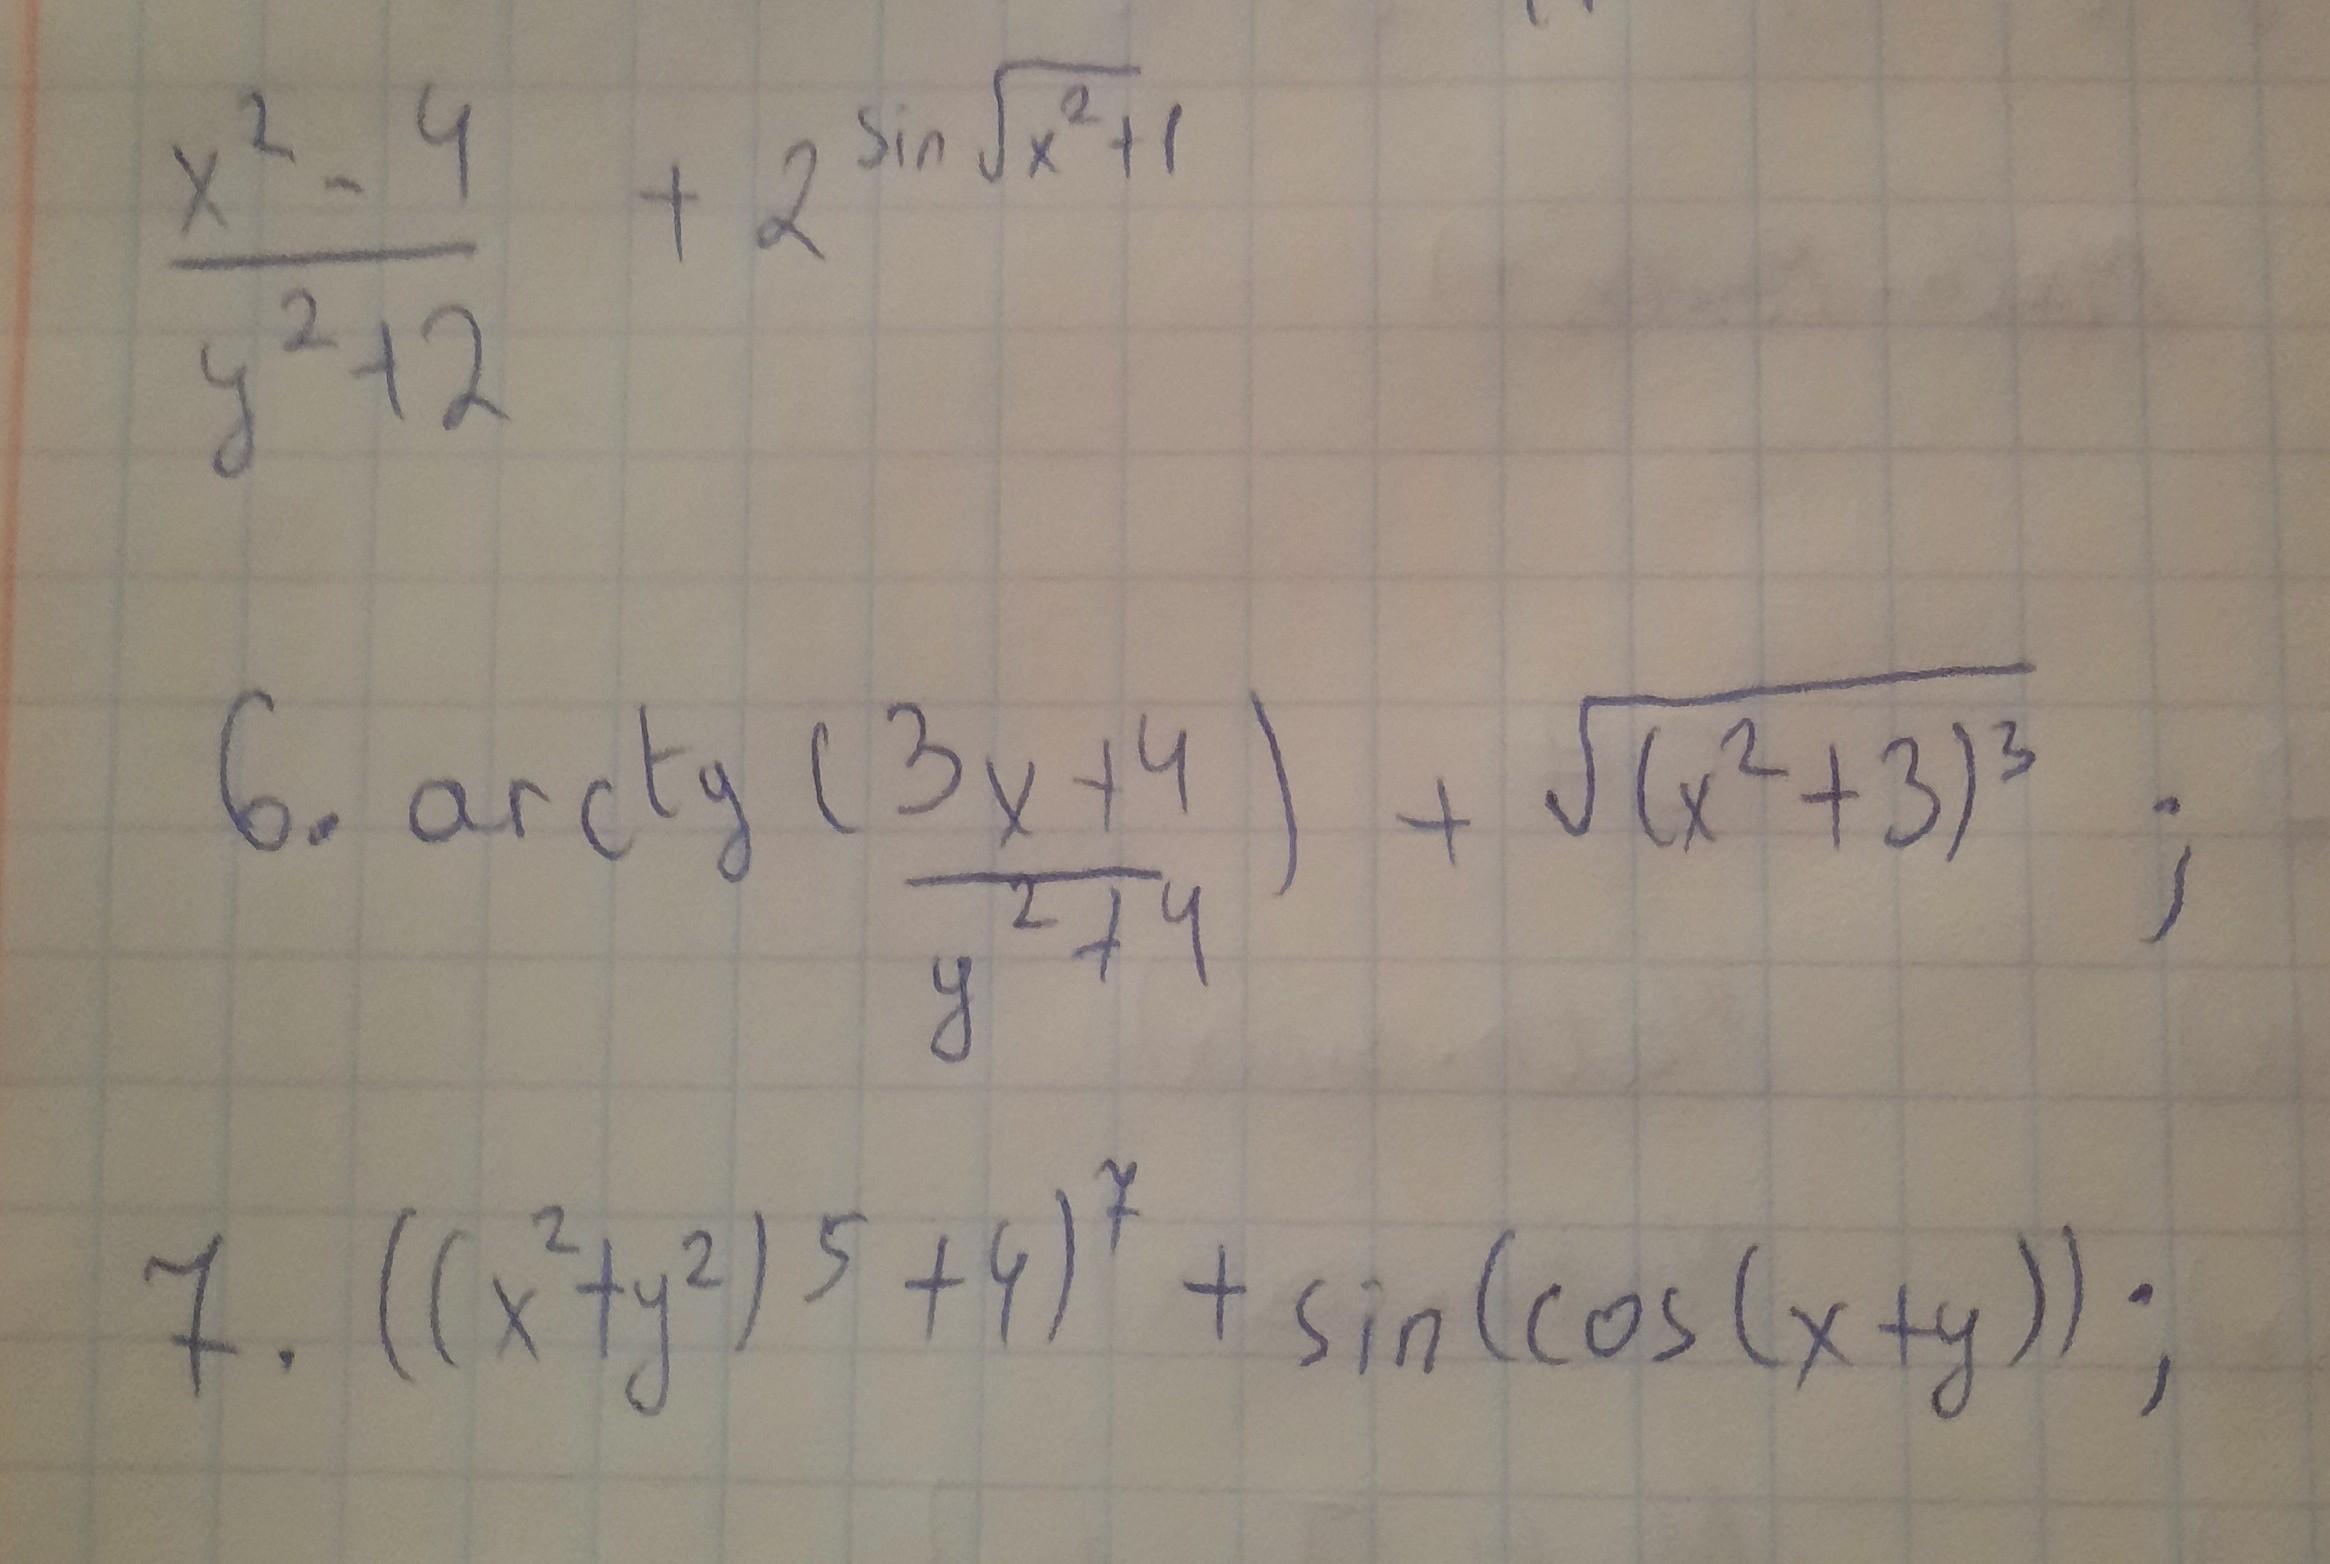 (x² - 4)/(y² + 2) + 2^(sin√(x²+1))
6. arctg((3x+4)/(y²+4)) + √((x²+3)³) ;
7. ((x²+y²)⁵ + 4)⁷ + sin(cos(x+y));